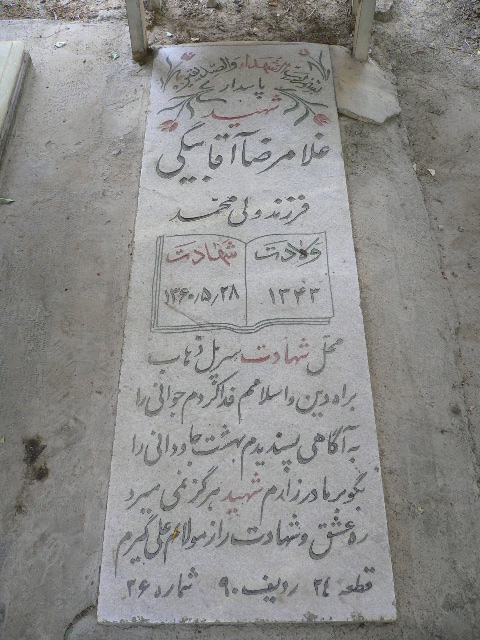 الشهداء والصدیقین
پاسدار
شهید
غلامرضا آقابیگی
فرزند ولی محمد
ولادت شهادت
۱۳۴۳ ۱۳۶۰/۵/۲۸
محل شهادت سرپل ذهاب
براه دین و اسلامم فدا کردم جوانی را
به آگاهی پسندیدم بهشت جاودانی را
بگو بر مادر زارم شهید هرگز نمی میرد
ره عشق و شهادت را ز مولایم علی گیرم
قطعه ۲۴ ردیف ۹۰ شماره ۲۶